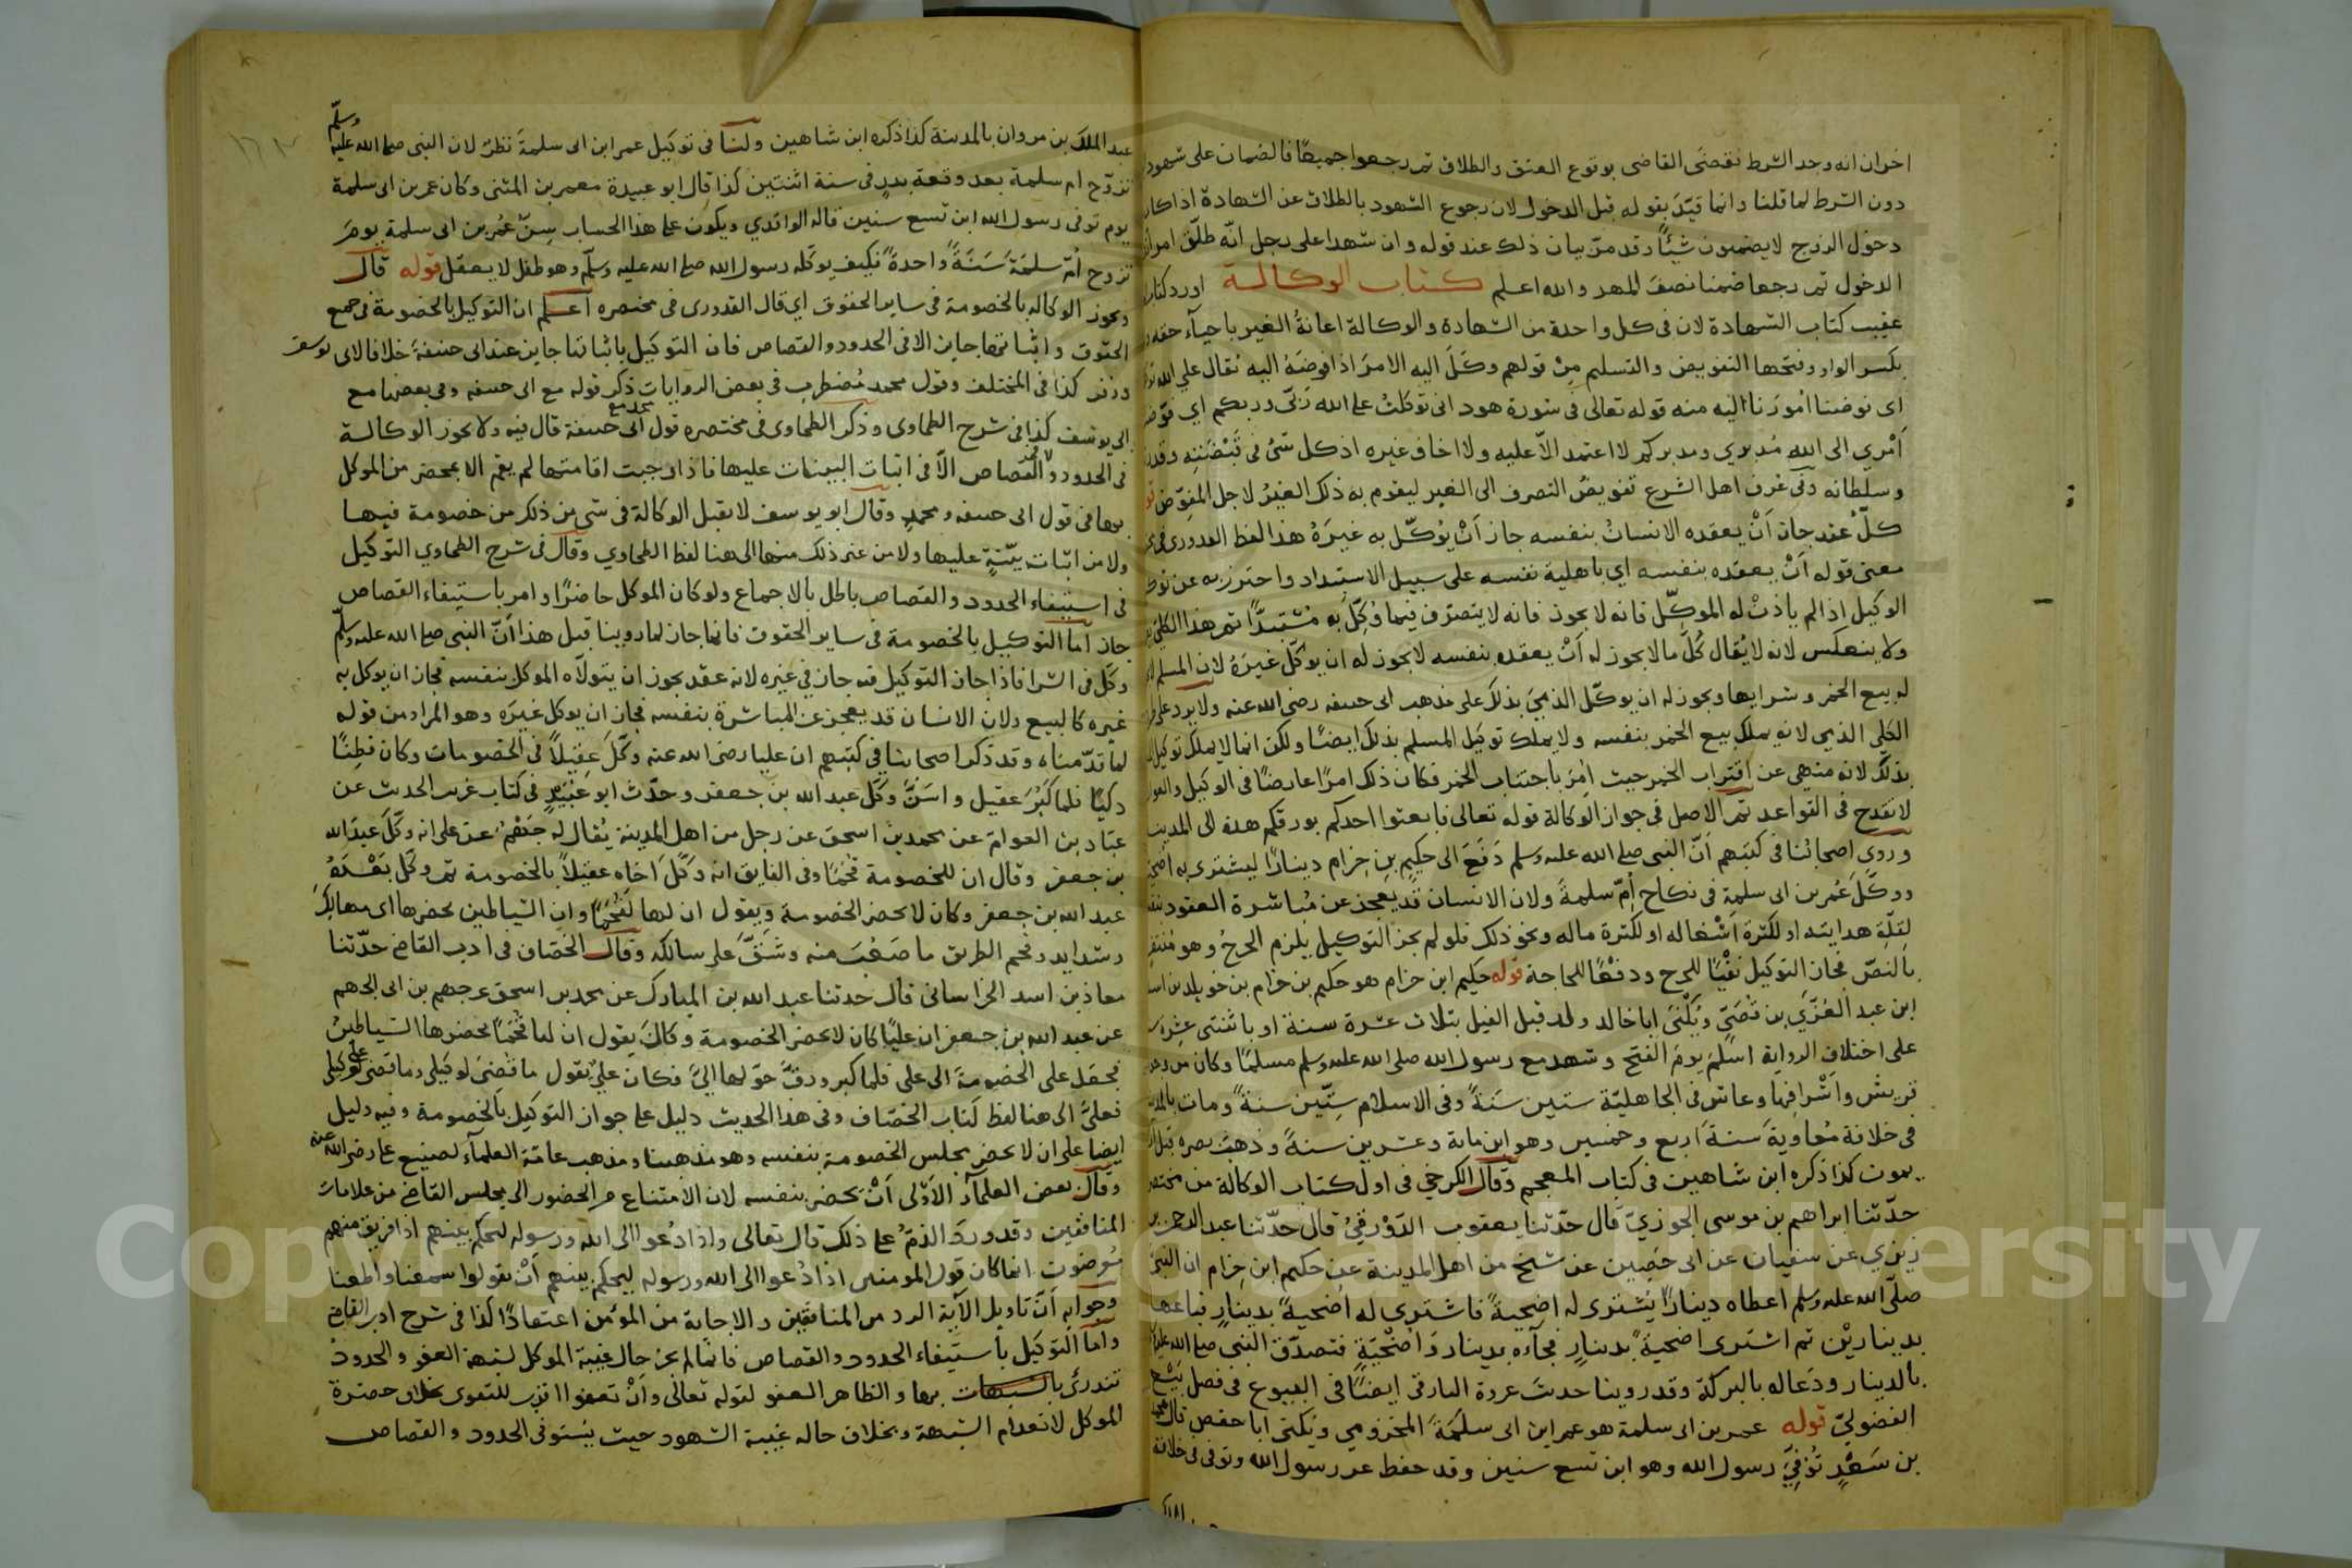 اخران انه وجد الشرط فقضى القاضى بوقوع العتق والطلاق ثم رجعوا جميعًا فالضمان على شهود
دون الشرط لما قلنا وانما قيّد بقوله قبل الدخول لان رجوع الشهود بالطلاق عن الشهادة اذا كان
دخول الزوج لا يضمنون شيئًا وقد مرّ بيان ذلك عند قوله وان شهدا على رجل انّه طلّق امراته
الدخول ثم رجعا ضمنا نصف المهر والله اعلم كتاب الوكالة اورد كتاب
عقيب كتاب الشهادة لان فى كل واحدة من الشهادة والوكالة اعانةُ الغير باحيآء حقه
بكسر الواو وفتحها التفويض والتسليم مِنْ قولهم وكَلَ اليه الامرَ اذا فوضَهُ اليه يُقال على الله
اى فوضنا امُورَنا اليه منه قوله تعالى فى سُورة هود انى توكلتُ على الله ربّى وربكم اى فوّضت
اَمْري الى الله مُدبري ومدبركم لا اعتمد الاّ عليه ولا اخاف غيره اذ كل شىُ فى قَبْضَتِه
وسلطانه وفى عُرف اهل الشرع تفويضُ التصرف الى الغير ليقوم به ذلك الغيرُ لاجل المفوّض
كلّ عقد جاز اَنْ يعقده الانسانُ بنفسه جاز اَنْ يُوكّل به غيرَهُ هذا لفظ القدورى
معنى قوله اَنْ يعقده بنفسه اي باهلية نفسه على سبيل الاستبداد واحترز به عن
الوكيل اذا لم ياذنْ له الموكّل فانه لا يجوز فانه لا يتصرّف فيما وُكِّل به مُسْتَبِدًّا ثم هذا
ولا ينعكس لانه لا يُقال كُلّ ما لا يجوز له اَنْ يعقده بنفسه لا يجوز له ان يوكّل غيرَهُ لان المسلم
له بيع الخمر وشرايها ويجوز له ان يوكّل الذمىّ بذلك على مذهب ابى حنيفه رضى الله عنه ولا يرد على
الكلى الذمى لانه يملك بيع الخمر بنفسه ولا يملك توكيل المسلم بذلك ايضًا ولكن انما لا يملك توكيل
بذلك لانه منهي عن اقتراب الخمر حيث اُمِرَ باجتناب الخمر فكان ذلك امرًا عارضًا فى الوكيل
لا يقدح فى القواعد ثم الاصل فى جواز الوكالة قوله تعالى فابعثوا احدكم بورقكم هذه الى المدينة
وروى اصحابُنا فى كتبهم اَنّ النبى صلى الله عليه وسلم دَفَعَ الى حكيم بن حزام دينارًا ليشترى به
ووكّلَ عُمر بن ابى سلمة فى نكاح اُمّ سلمةَ ولان الانسان قد يعجز عن مُباشرة العقود
لقلّة هدايته او لكثرة اَشْغاله او لكثرة ماله ونحو ذلك فلو لم يجز التوكيل يلزم الحرجُ وهو
بالنصّ فجاز التوكيل نفيًا للحرج ودفْعًا للحاجة قوله حكيم ابن حزام هو حكيم بن حزام بن خويلد بن
ابن عبد العُزّى بن قُصَىّ ويُكْنَىَ ابا خالد ولد قبل الفيل بثلاث عشرة سنة او باثنتى عشرة
على اختلاف الرواية اسْلمَ يومَ الفتح وشهد مع رسول الله صلى الله عليه وسلم مسلمًا وكان من
قريش واَشْرافِها وعاش فى الجاهليّة ستين سَنةً وفى الاسلام سِتّين سنةً ومات
فى خلافة مُعاويةَ سنةَ اربع وخمسين وهو ابن ماية وعشرين سنةً وذهبَ بصره قبل ان
يموت كذا ذكره ابن شاهين فى كتاب المعجم وقال الكرخى فى اول كتاب الوكالة من
حدّثنا ابراهيم بن موسى الجوزيّ قال حدّثنا يعقوب الدَوْرقيُ قال حدّثنا عبد الرحمن بن
عن سفيان عن ابى حَصِين عن شيخ من اهل المدينة عن حكيم ابن حِزام ان النبى
صلّى الله عليه وسلم اعطاه دينارًا يُشترى له اضحيةً فاشترى له اُضحيةً بدينارٍ فباعها
بدينارَيْن ثم اشترى اضحيةً بدينارٍ فجآءه بدينار واُضْحيّةٍ فتصدّق النبى صلى الله عليه
بالدينار ودَعا له بالبركة وقد روينا حديثَ عروة البارقى ايضًا فى البيوع فى فصل بَيْع
الفضوليّ قوله عمر بن ابى سلمة هو عمر ابن ابى سلمَةَ المخزومى ويُكنى ابا حفص قال
بن سَعْدٍ تُوُفِّىَ رسول الله وهو ابن تسع سنين وقد حفظ عن رسول الله وتوفى فى خلافة
عبد الملك بن مروان بالمدينة كذا ذكره ابن شاهين ولنا فى توكيل عمر ابن ابى سلمةَ نظرٌ لان النبى صلى الله عليه وسلّم
تزوّج ام سلمة بعد وقعة بدرٍ فى سنة اثنتين كذا قال ابو عبيدة معمر بن المثنى وكان عمر بن ابى سلمة
يوم توفى رسول الله ابن تسع سنين قاله الواقدي ويكون على هذا الحساب سِنّ عُمر بن ابى سلمة يومَ
تزوج اُمّ سلمَةَ سَنَةً واحدةً فكيف يوكّله رسول الله صلى الله عليه وسلّم وهو طفل لا يعقل قوله قال
ويجوز الوكاله بالخصومة فى ساير الحقوق اي قال القدورى فى مختصره اعلم ان التوكيل بالخصومة فى جميع
الحقوق واثباتها جايز الا فى الحدود والقصاص فان التوكيل باثباتها جايز عند ابى حنيفةَ خلافا لابى يوسف
وزفر كذا فى المختلف وقول محمد مُضطرب فى بعض الروايات ذكر قوله مع ابى حنيفه وفى بعضها مع
ابى يوسف كذا فى شرح الطحاوى وذكر الطحاوى فى مختصره قول محمد مع ابى حنيفة قال فيه ولا يجوز الوكالة
فى الحدود ولا القصاص الاّ فى اثبات البينات عليها فاذا وجبت اقامتها لم يقم الا بمحضر من الموكل
بها فى قول ابى حنيفه ومحمدٍ وقال ابو يوسف لا يقبل الوكالة فى شىٍ من ذلك من خصومة فيها
ولا من اثبات بيّنةٍ عليها ولا من غير ذلك منها الى هنا لفظ الطحاوي وقال فى شرح الطحاوي التوكيل
فى استيفاء الحدود والقصاص باطل بالاجماع ولو كان الموكل حاضرًا وامر باستيفاء القصاص
جاز اما التوكيل بالخصومة فى ساير الحقوق فانما جاز لما روينا قبل هذا اَنّ النبى صلى الله عليه وسلّم
وكّل فى الشرا فاذا جاز التوكيل فيه جاز فى غيره لانه عقد يجوز ان يتولاّه الموكل بنفسه فجاز ان يوكل به
غيره كالبيع ولان الانسان قد يعجز عن المباشرة بنفسه فجاز ان يوكل غيرَه وهو المراد من قوله
لما قدّمناه وقد ذكر اصحابنا فى كتبهم ان عليا رضى الله عنه وكّلَ عقيلاً فى الخصومات وكان فَطِنًا
ذكيًا فلما كَبُرَ عقيل واسَنَّ وكّل عبد الله بن جعفر وحدّث ابو عُبَيْدٍ فى كتاب غريب الحديث عن
عبّاد بن العوام عن محمد بن اسحق عن رجل من اهل المدينة يُقال له جَهْمٌ عن على انه وكّلَ عبدَ الله
بن جعفر وقال ان للخصومة قُحَمًا وفى الفايق انه وكّلَ اَخاه عقيلاً بالخصومة ثم وكّل بَعْدَهُ
عبد الله بن جعفر وكان لا يحضر الخصومة ويقول ان لها لَقُحَمًا وان الشياطين تحضرها اى مهالكَ
وشدايد وقحم الطريق ما صَعُبَ منه وشَقَّ على سالكه وقال الخصّاف فى ادب القاضى حدّثنا
معاذ بن اسد الخراسانى قال حدثنا عبد الله بن المبارك عن محمد بن اسحق عن جهم بن ابى الجهم
عن عبد الله بن جعفر ان عليًا كان لا يحضر الخصومة وكانَ يقول ان لها قُحَمًا تحضرها الشياطينُ
فجعَل على الخصومةَ الى على فلما كبر ورقَّ حوّلها اِليَّ فكان علىٌ يقول ما قُضىَ لوكيلى وما قضى على وكيلى
فعلىَّ الى هنا لفظ كتاب الخصّاف وفى هذا الحديث دليل على جواز التوكيل بالخصومة وفيه دليل
ايضا على ان لا يحضر مجلس الخصومة بنفسه وهو مذهبنا ومذهب عامّة العلمآء لصنيع على رضى الله عنه
وقال بعض العلمآء الاَوْلى اَنْ يحضر بنفسه لان الامتناع من الحضور الى مجلس القاضى من علامات
المنافقين وقد وردَ الذمُّ على ذلك قال تعالى واذا دُعوا الى الله ورسوله ليحكم بينهم اذا فريق منهم
مُعرضون انما كان قول المومنين اذا دُعوا الى الله ورسوله ليحكم بينهم اَنْ يقولوا سمعنا واطعنا
وجوابه اَنّ تاويل الآية الرد من المنافقين والاجابة من المؤمن اعتقادًا كذا فى شرح ادب القاضى
واما التوكيل باستيفاء الحدود والقصاص فانما لم يجز حال غيبة الموكل لشبهة العفو والحدود
تندرئ بالشبهات بها والظاهر العفو لقوله تعالى واَنْ تعفوا اقرب للتقوى بخلاف حضرة
الموكل لانعدام الشبهة وبخلاف حالة غيبة الشهود حيث يُستوفى الحدود والقصاص
Copyright © King Saud University